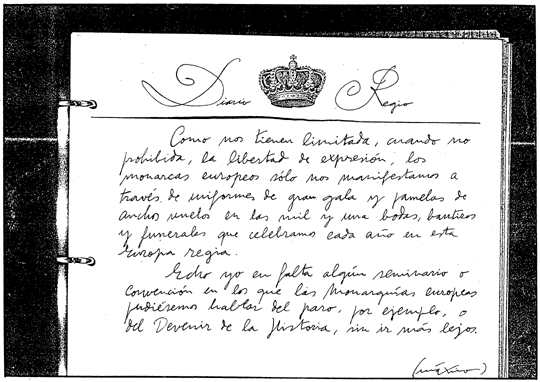 Diario Regio
Como nos tienen limitada, cuando no
prohibida, la libertad de expresión, los
monarcas europeos sólo nos manifestamos a
través de uniformes de gran gala y pamelas de
anchos vuelos en las mil y una bodas, bautizos
y funerales que celebramos cada año en esta
Europa regia.
Echo yo en falta algún seminario o
convención en los que las Monarquías europeas
pudiésemos hablar del paro, por ejemplo, o
del Devenir de la Historia, sin ir más lejos.
(máximo)